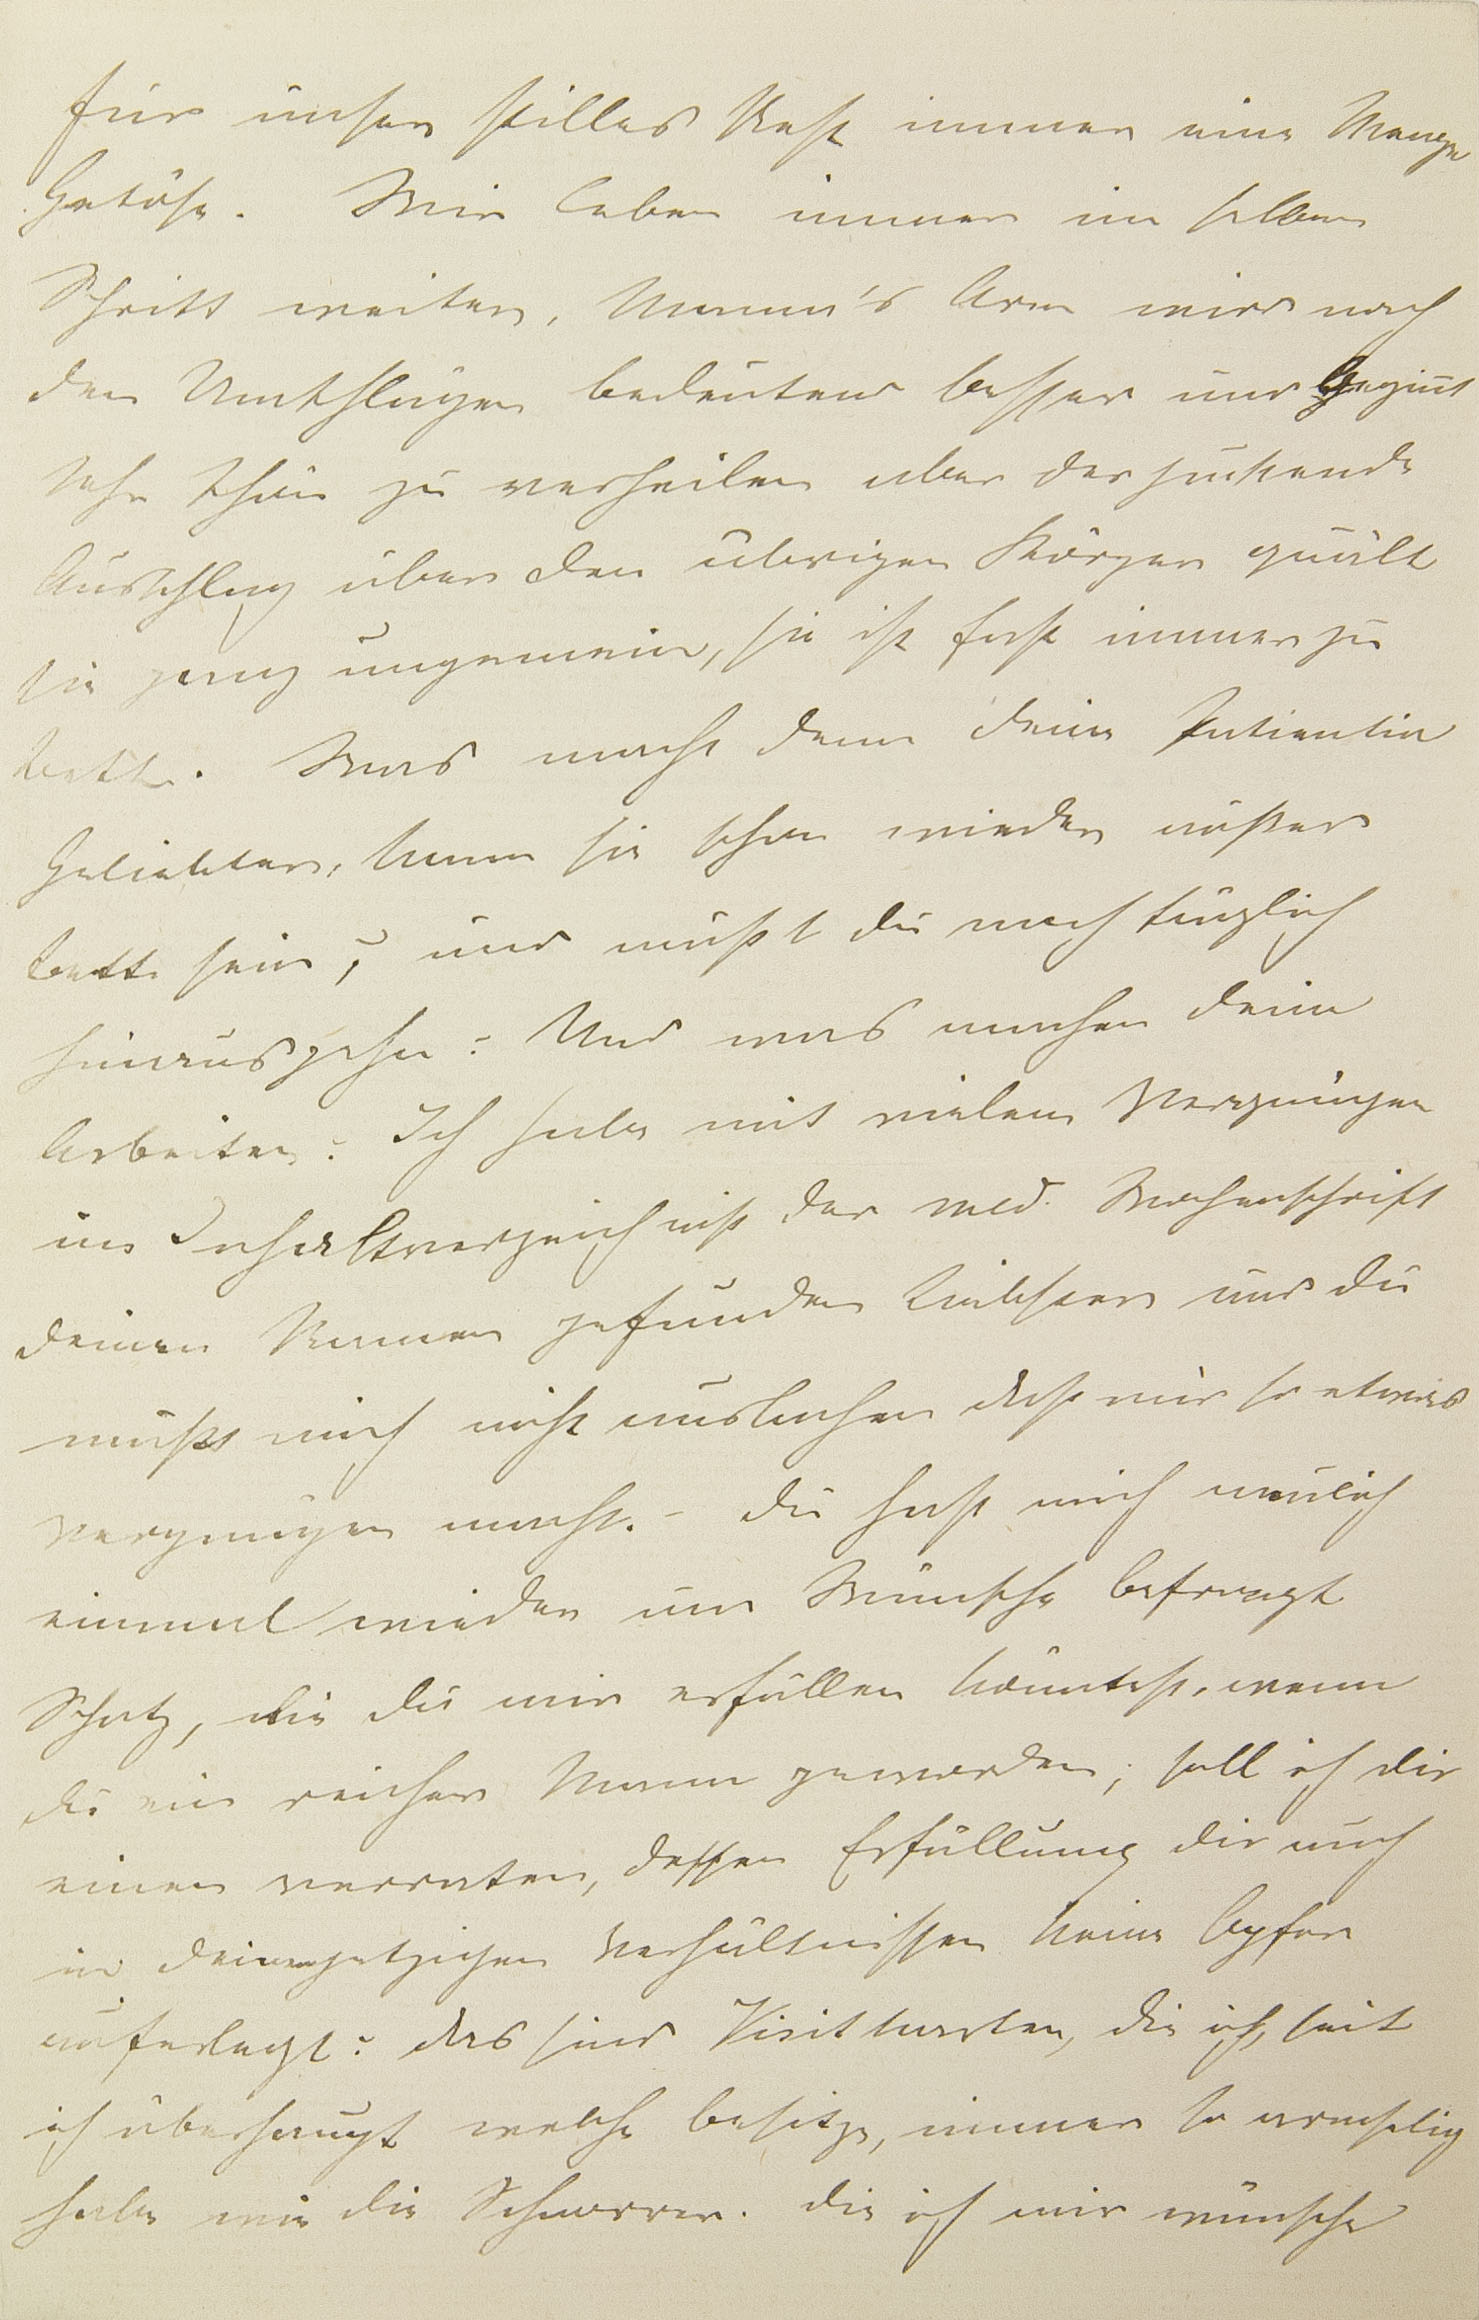 für unser stilles Nest immer eine Menge
Getöse. Wir leben immer im selben
Schritt weiter, Mama's Arm wird nach
den Umschlägen bedeutend besser und beginnt
sehr schön zu verheilen aber der juckende
Ausschlag über den übrigen Körper quält
sie ganz ungemein, sie ist fast immer zu
Bett. Was macht denn deine Patientin
Geliebter, kann sie schon wieder außer
Bett sein, und mußt du noch täglich
hinausgehen? Und was machen deine
Arbeiten? Ich habe mit vielem Vergnügen
im Inhaltverzeichniß der med. Wochenschrift
deinen Namen gefunden Liebster und du
mußt mich nicht auslachen daß mir so etwas
Vergnügen macht. – Du hast mich neulich
einmal wieder um Wünsche befragt
Schatz, die du mir erfüllen könntest, wenn
du ein reicher Mann geworden; soll ich dir
einen verraten, dessen Erfüllung dir auch
in deinen jetzigen Verhältnissen keine Opfer
auferlegt? das sind Visitkarten, die ich, seit
ich überhaupt welche besitze, immer so armselig
habe wie die Schnorrer. die ich mir wünsche